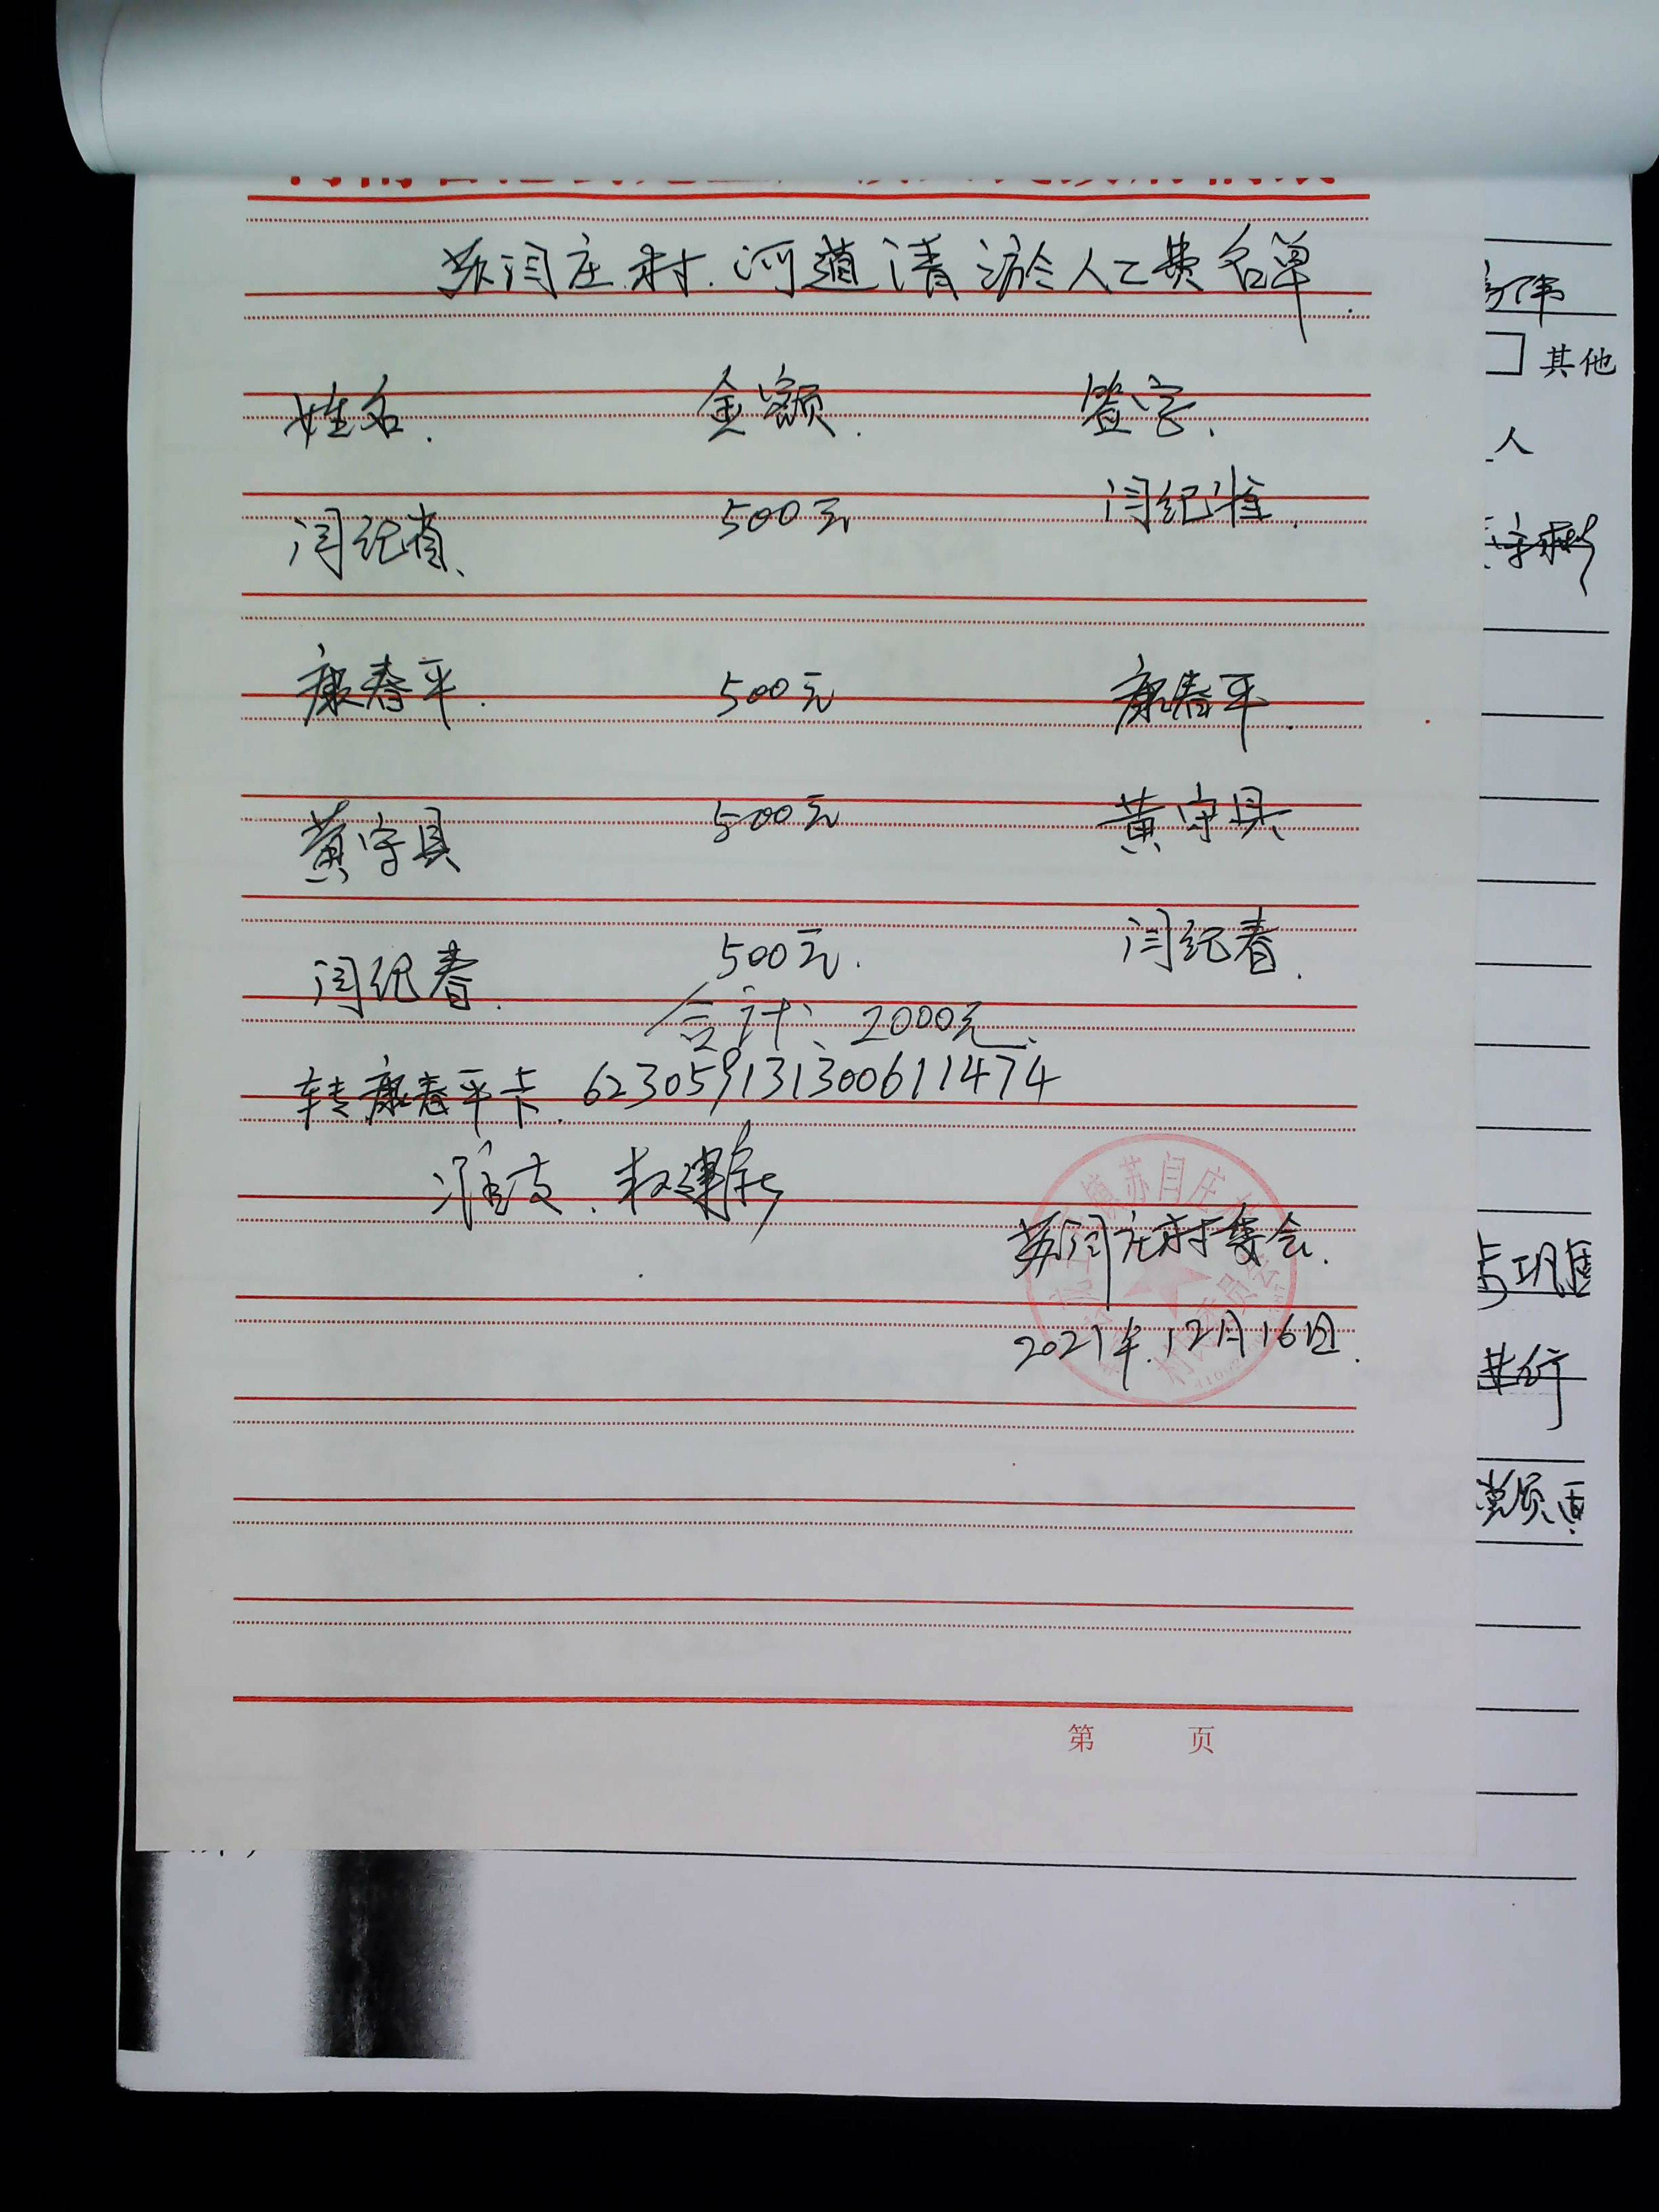 苏闫庄村.河道清淤人工费名单.
姓名. 金额. 签字.
闫纪 500元 闫纪
康春平. 500元 康春平.
黄守具 500元 黄守具
闫纪春. 500元. 闫纪春.
合计、2000元.
转康春平卡. 623059131300611474
准支、权建
苏闫庄村委会.
2021年.12月16日.
第 页
其他
人
进行